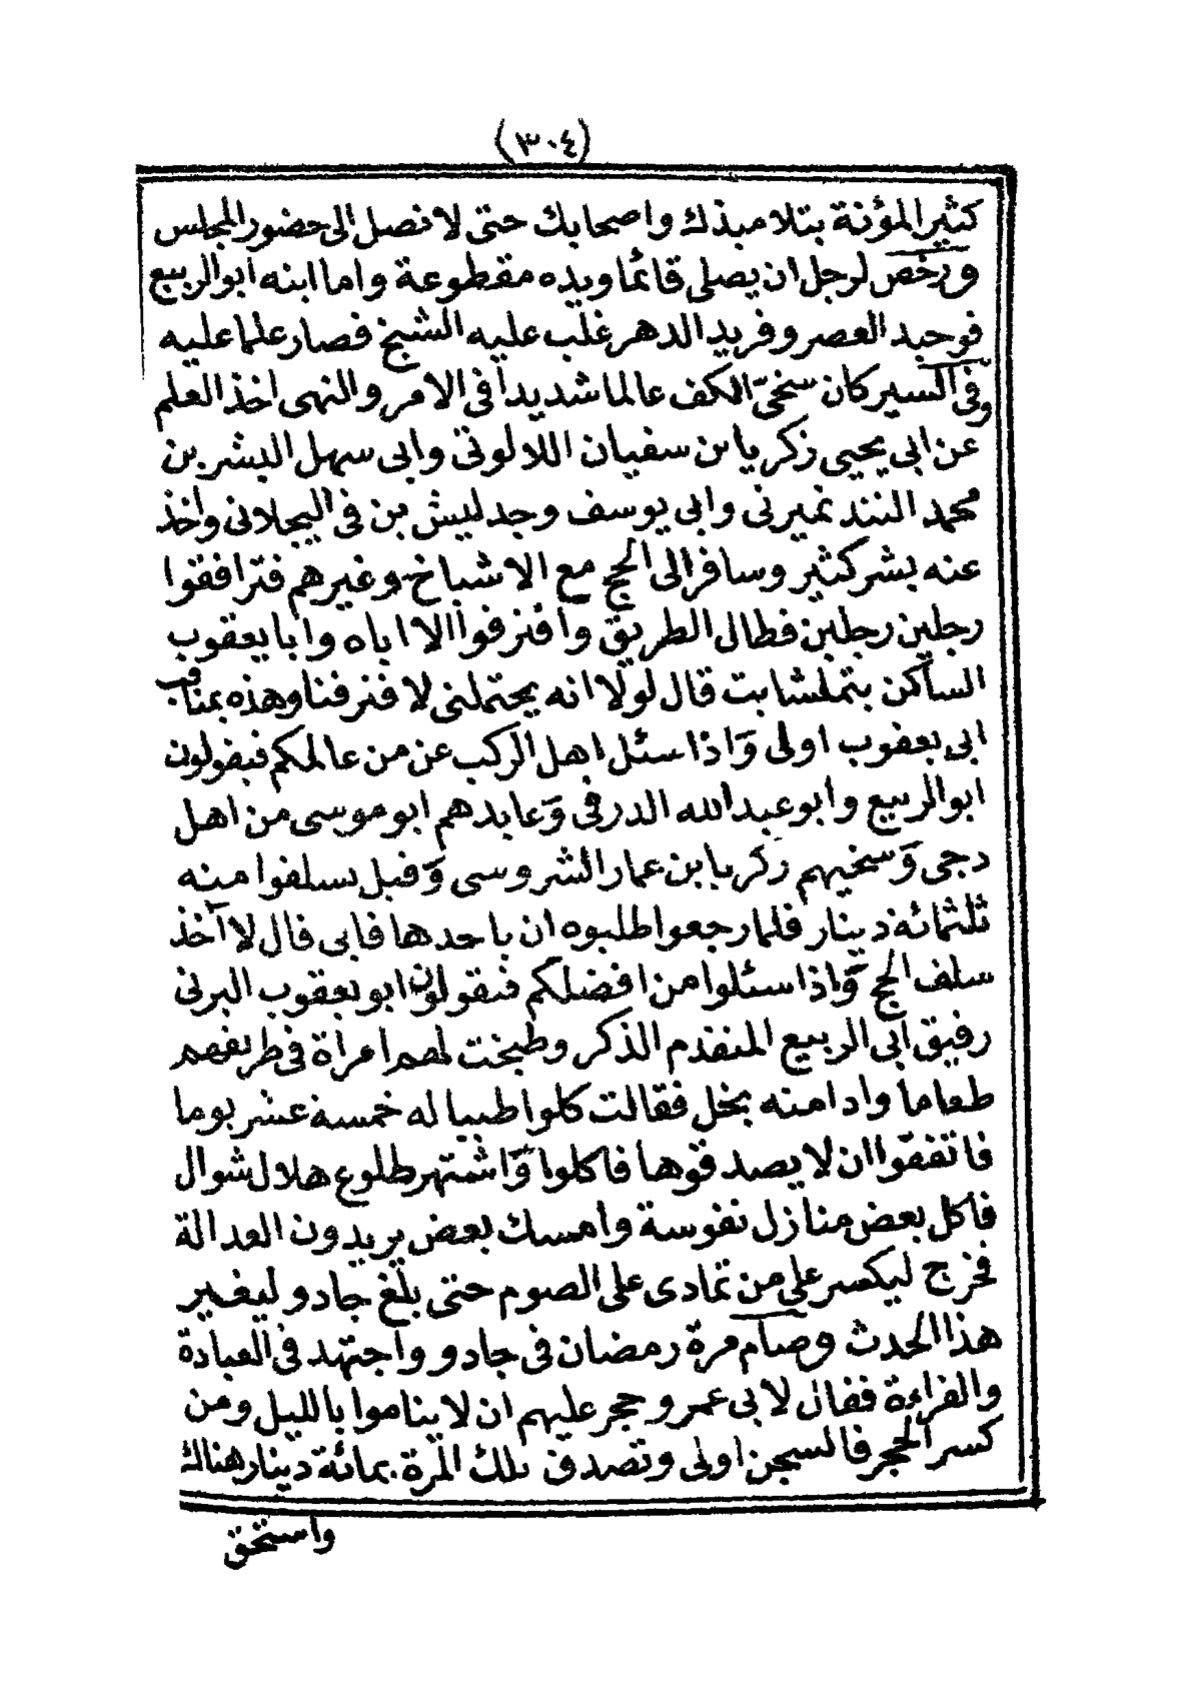 (٣٠٤)
كثير المؤنة بتلاميذك واصحابك حتى لا نصل الى حضور المجلس
ورخص لرجل ان يصلى قائما ويده مقطوعة واما ابنه ابو الربيع
فوحيد العصر وفريد الدهر غلب عليه الشيخ فصار علما عليه
وفى السير كان سخىّ الكف عالما شديدا فى الامر والنهى اخذ العلم
عن ابى يحيى زكرياء بن سفيان اللالوتى وابى سهل البشر بن
محمد التندنميرتى وابى يوسف وجدليش بن فى اليجلانى واخذ
عنه بشر كثير وسافر الى الحج مع الاشياخ وغيرهم فترافقوا
رجلين رجلين فطال الطريق وافترقوا الا اياه وابا يعقوب
الساكن بتملشايت قال لولا انه يحتملنى لافترقنا وهذه بمناقب
ابى يعقوب اولى وَاذا سئل اهل الركب عن من عالمكم فيقولون
ابو الربيع وابو عبد الله الدرفى وَعابدهم ابو موسى من اهل
دجى وَسخيهم زكريا بن عمار الشروسى وَقيل تسلفوا منه
ثلثمائة دينار فلما رجعوا طلبوه ان ياخدها فابى قال لا آخذ
سلف الحج وَاذا سئلوا من افضلكم فيقولون ابو يعقوب البرنى
رفيق ابى الربيع المتقدم الذكر وطبخت لهم امرأة فى طريقهم
طعاما وادامته بخل فقالت كلوا طيبا له خمسة عشر يوما
فاتفقوا ان لا يصدقوها فاكلوا وَاشتهر طلوع هلال شوال
فاكل بعض منازل نفوسة وامسك بعض يريدون العدالة
فخرج ليكسر على من تمادى على الصوم حتى بلغ جادو ليغير
هذا الحدث وصام مرة رمضان فى جادو واجتهد فى العبادة
والقراءة فقال لابى عمرو حجر عليهم ان لا يناموا بالليل ومن
كسر الحجر فالسجن اولى وتصدق تلك المرة بمائة دينار هناك
واستحق